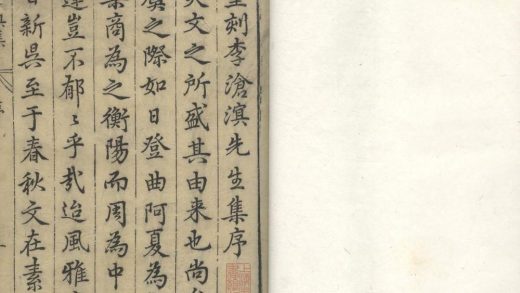 刻李滄溟先生集序
文之所盛其由来也尚
虞之際如日登曲阿夏為
商為之衡陽而周為中
豈不郁〻乎㢤迨風雅
新吳至于春秋文在素